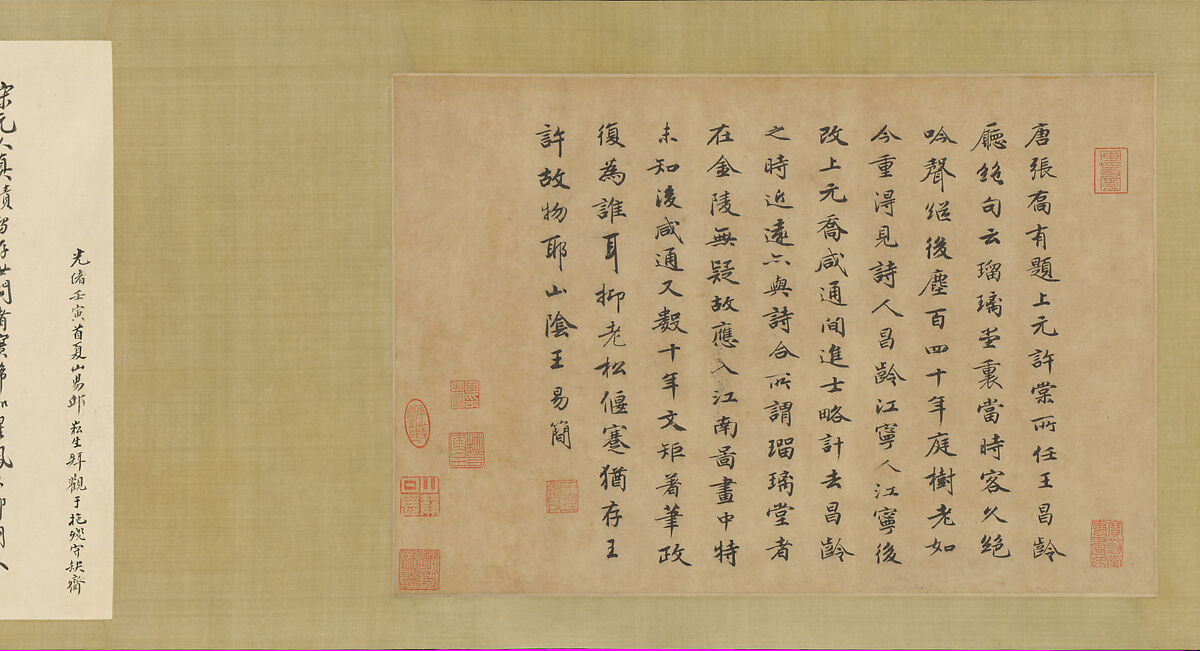 唐張喬有題上元許棠所任王昌齡
廳絶句云瑠璃堂裏當時客久絶
吟聲継後塵百四十年庭樹老如
今重淂見詩人昌齡江寧人江寧後
改上元喬咸通間進士略計去昌齡
之時近遠亦與詩合所謂瑠璃堂者
在金陵無疑故應入江南圖畫中特
未知後咸通又數十年文矩著筆政
復為誰耳抑老松偃蹇猶存王
許故物耶山陰王易簡
光緒壬寅首夏山昜邱崧生拜觀于抱殘守缺齋
宋元人真蹟